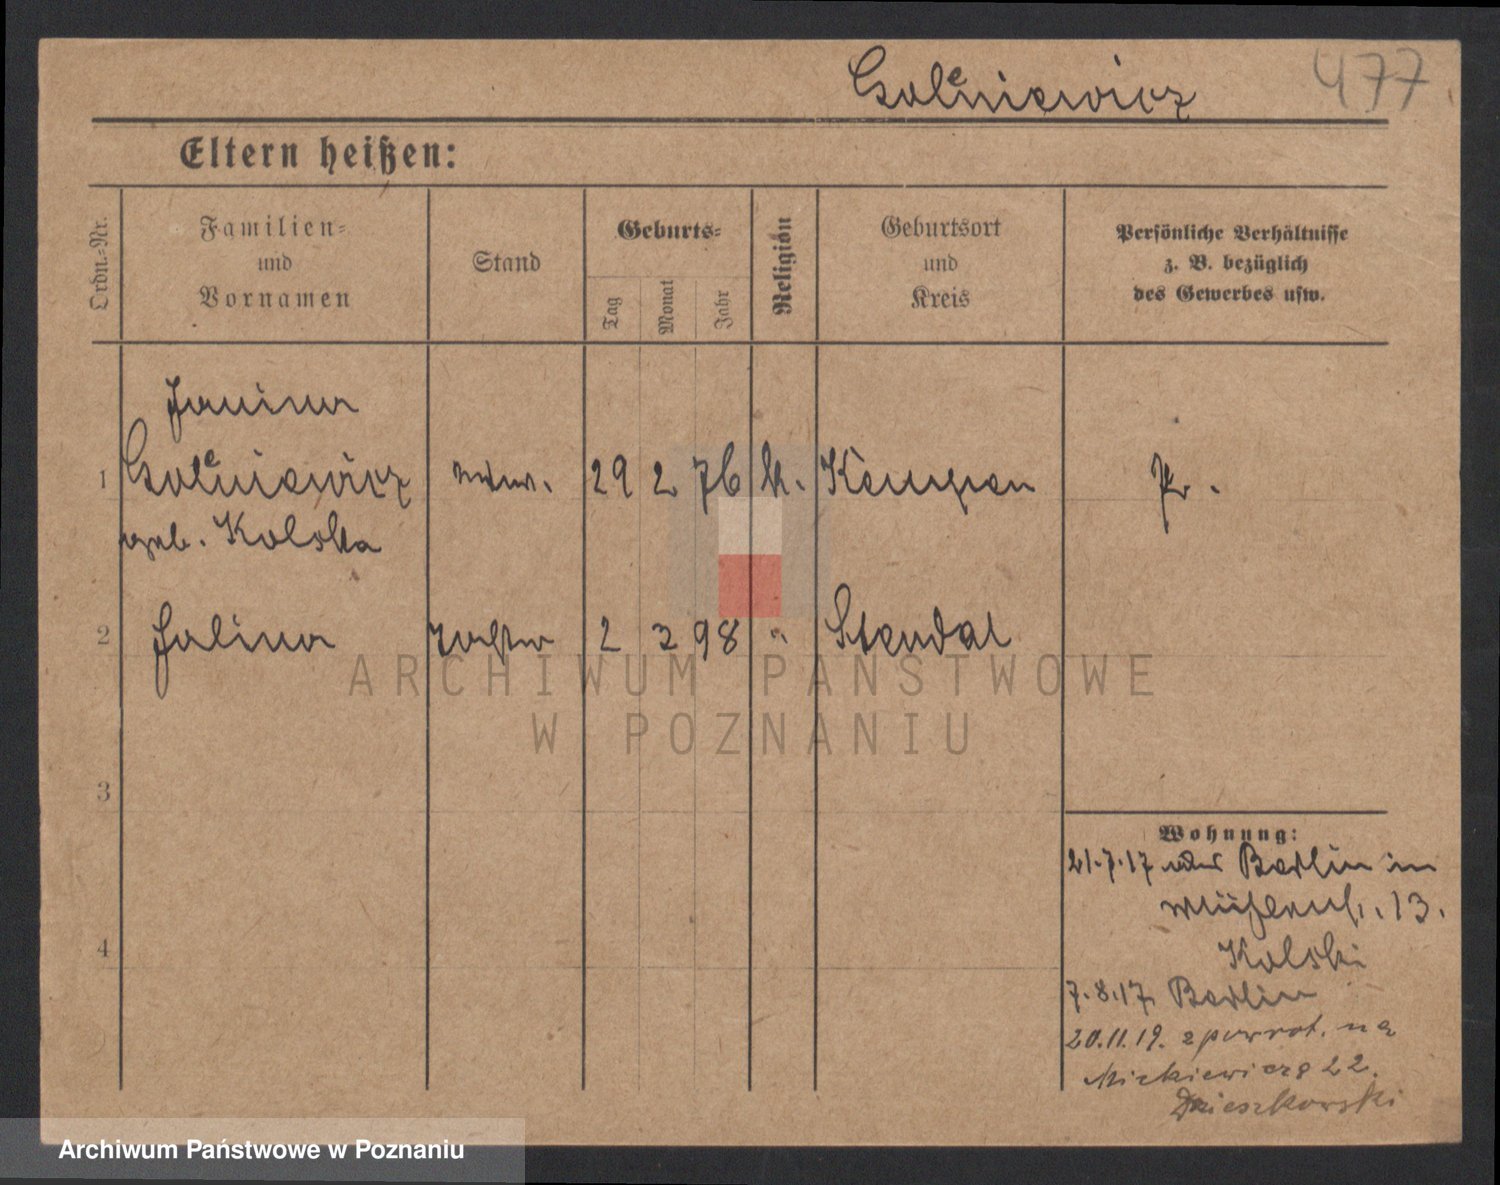 Goleniewicz 477
Eltern heißen:
Ordn.=Nr.
Familien=
und
Vornamen
Stand
Geburts=
Tag
Monat
Jahr
Religion
Geburtsort
und
Kreis
Persönliche Verhältnisse
z. B. bezüglich
des Gewerbes usw.
Janina
1 Goleniewicz 29 2 76 k. Kempen Pr.
geb. Kolska
2 Halina 2 98 " Stendal
3
4
Wohnung:
21.7.17 Berlin
13.
Kolski
7.8.17. Berlin
20.11.19. z powrot. na
Mickiewicza 22.
ARCHIWUM PAŃSTWOWE
W POZNANIU
Archiwum Państwowe w Poznaniu